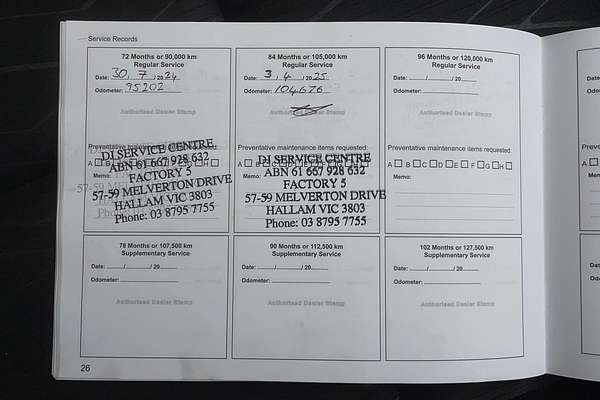 Service Records
72 Months or 90,000 km
Regular Service
Date: 30 / 7 / 20 24
Odometer: 95202
Authorised Dealer Stamp
Preventative maintenance items requested:
DI SERVICE CENTRE
ABN 61 667 928 632
FACTORY 5
57-59 MELVERTON DRIVE
HALLAM VIC 3803
Phone: 03 8795 7755
84 Months or 105,000 km
Regular Service
Date: 3 / 4 / 20 25
Odometer: 104676
Preventative maintenance items requested:
DI SERVICE CENTRE
ABN 61 667 928 632
FACTORY 5
57-59 MELVERTON DRIVE
HALLAM VIC 3803
Phone: 03 8795 7755
96 Months or 120,000 km
Regular Service
Date: / / 20
Odometer:
Authorised Dealer Stamp
Preventative maintenance items requested:
A B C D E F G H
Memo:
78 Months or 107,500 km
Supplementary Service
Date: / / 20
Odometer:
Authorised Dealer Stamp
90 Months or 112,500 km
Supplementary Service
Date: / / 20
Odometer:
Authorised Dealer Stamp
102 Months or 127,500 km
Supplementary Service
Date: / / 20
Odometer:
Authorised Dealer Stamp
26